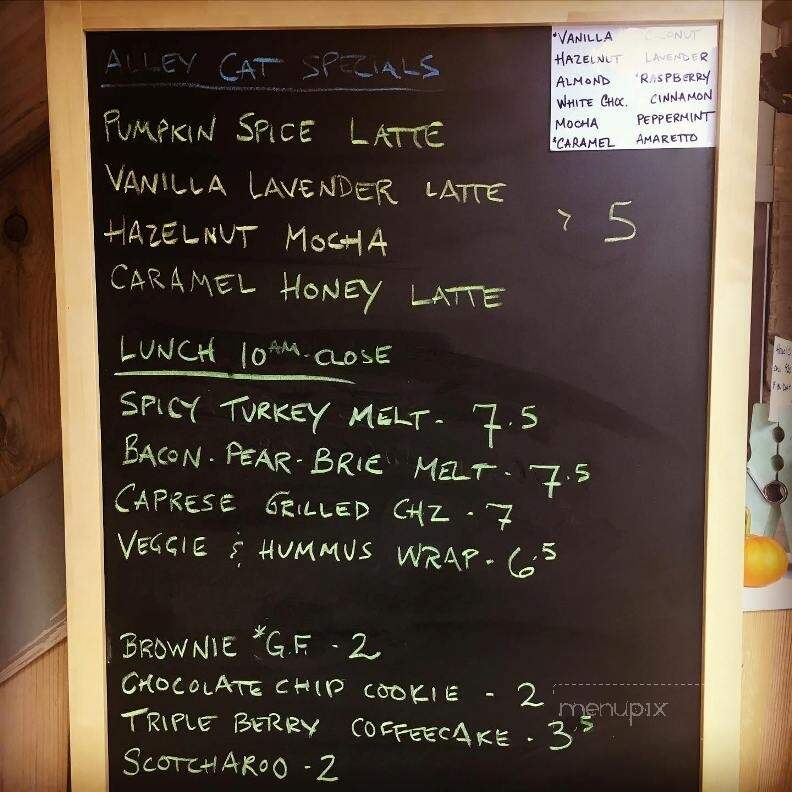 ALLEY CAT SPECIALS
PUMPKIN SPICE LATTE
VANILLA LAVENDER LATTE
HAZELNUT MOCHA
CARAMEL HONEY LATTE
> 5
*VANILLA COCONUT
HAZELNUT LAVENDER
ALMOND *RASPBERRY
WHITE CHOC. CINNAMON
MOCHA PEPPERMINT
*CARAMEL AMARETTO
LUNCH 10AM-CLOSE
SPICY TURKEY MELT - 7.5
BACON-PEAR-BRIE MELT - 7.5
CAPRESE GRILLED CHZ - 7
VEGGIE & HUMMUS WRAP - 6.5
BROWNIE *G.F. - 2
CHOCOLATE CHIP COOKIE - 2
TRIPLE BERRY COFFEECAKE - 3.5
SCOTCHAROO - 2
menupix